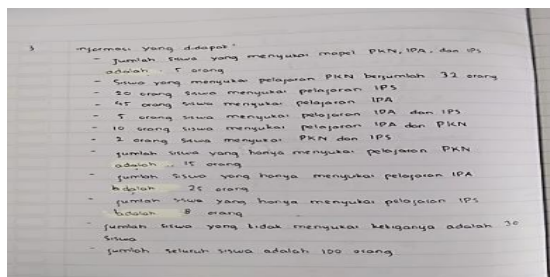 3 informasi yang didapat :
- Jumlah siswa yang menyukai mapel PKN, IPA, dan IPS
adalah 5 orang
- Siswa yang menyukai pelajaran PKN berjumlah 32 orang
- 20 orang siswa menyukai pelajaran IPS
- 45 orang siswa menyukai pelajaran IPA
- 5 orang siswa menyukai pelajaran IPA dan IPS
- 10 orang siswa menyukai pelajaran IPA dan PKN
- 2 orang siswa menyukai PKN dan IPS
- Jumlah siswa yang hanya menyukai pelajaran PKN
adalah 15 orang
- Jumlah siswa yang hanya menyukai pelajaran IPA
adalah 25 orang
- Jumlah siswa yang hanya menyukai pelajaran IPS
adalah 8 orang
- Jumlah siswa yang tidak menyukai ketiganya adalah 30
siswa
- Jumlah seluruh siswa adalah 100 orang